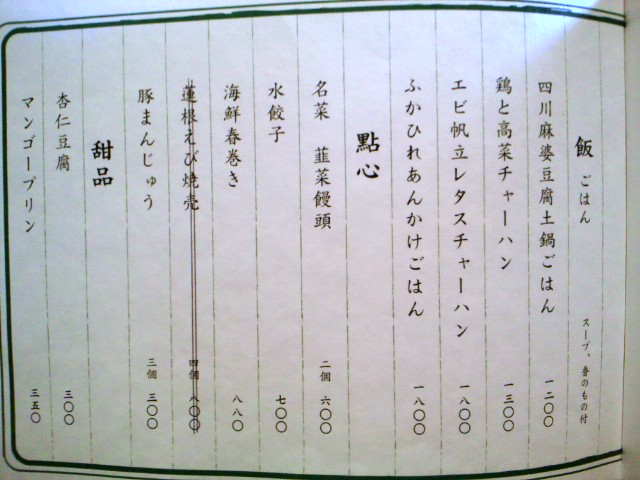 飯 ごはん スープ、香のもの付
四川麻婆豆腐土鍋ごはん 一二〇〇
鶏と高菜チャーハン 一三〇〇
エビ帆立レタスチャーハン 一八〇〇
ふかひれあんかけごはん 一八〇〇
點心
名菜 韮菜饅頭 二個 六〇〇
水餃子 七〇〇
海鮮春巻き 八八〇
蓮根えび焼売 四個 八〇〇
豚まんじゅう 三個 三〇〇
甜品
杏仁豆腐 三〇〇
マンゴープリン 三五〇